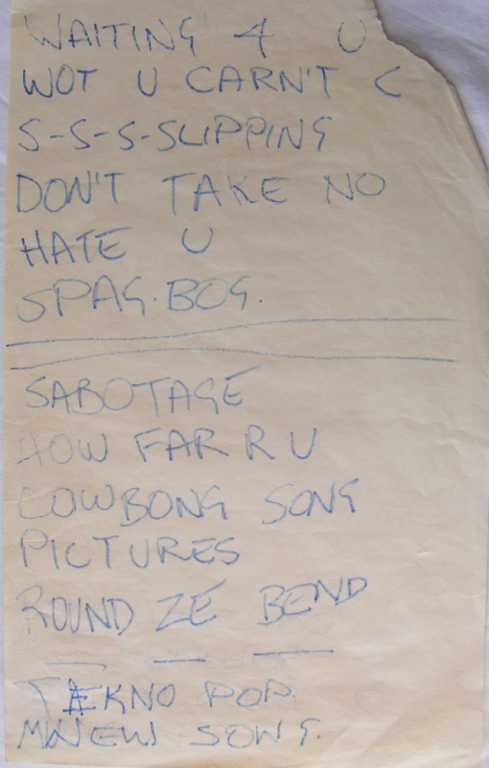 WAITING 4 U
WOT U CARN'T C
S-S-S-SLIPPING
DON'T TAKE NO
HATE U
SPAG. BOG.
SABOTAGE
HOW FAR R U
COWBONG SONG
PICTURES
ROUND ZE BEND
TÆKNO POP.
NEW SONG.